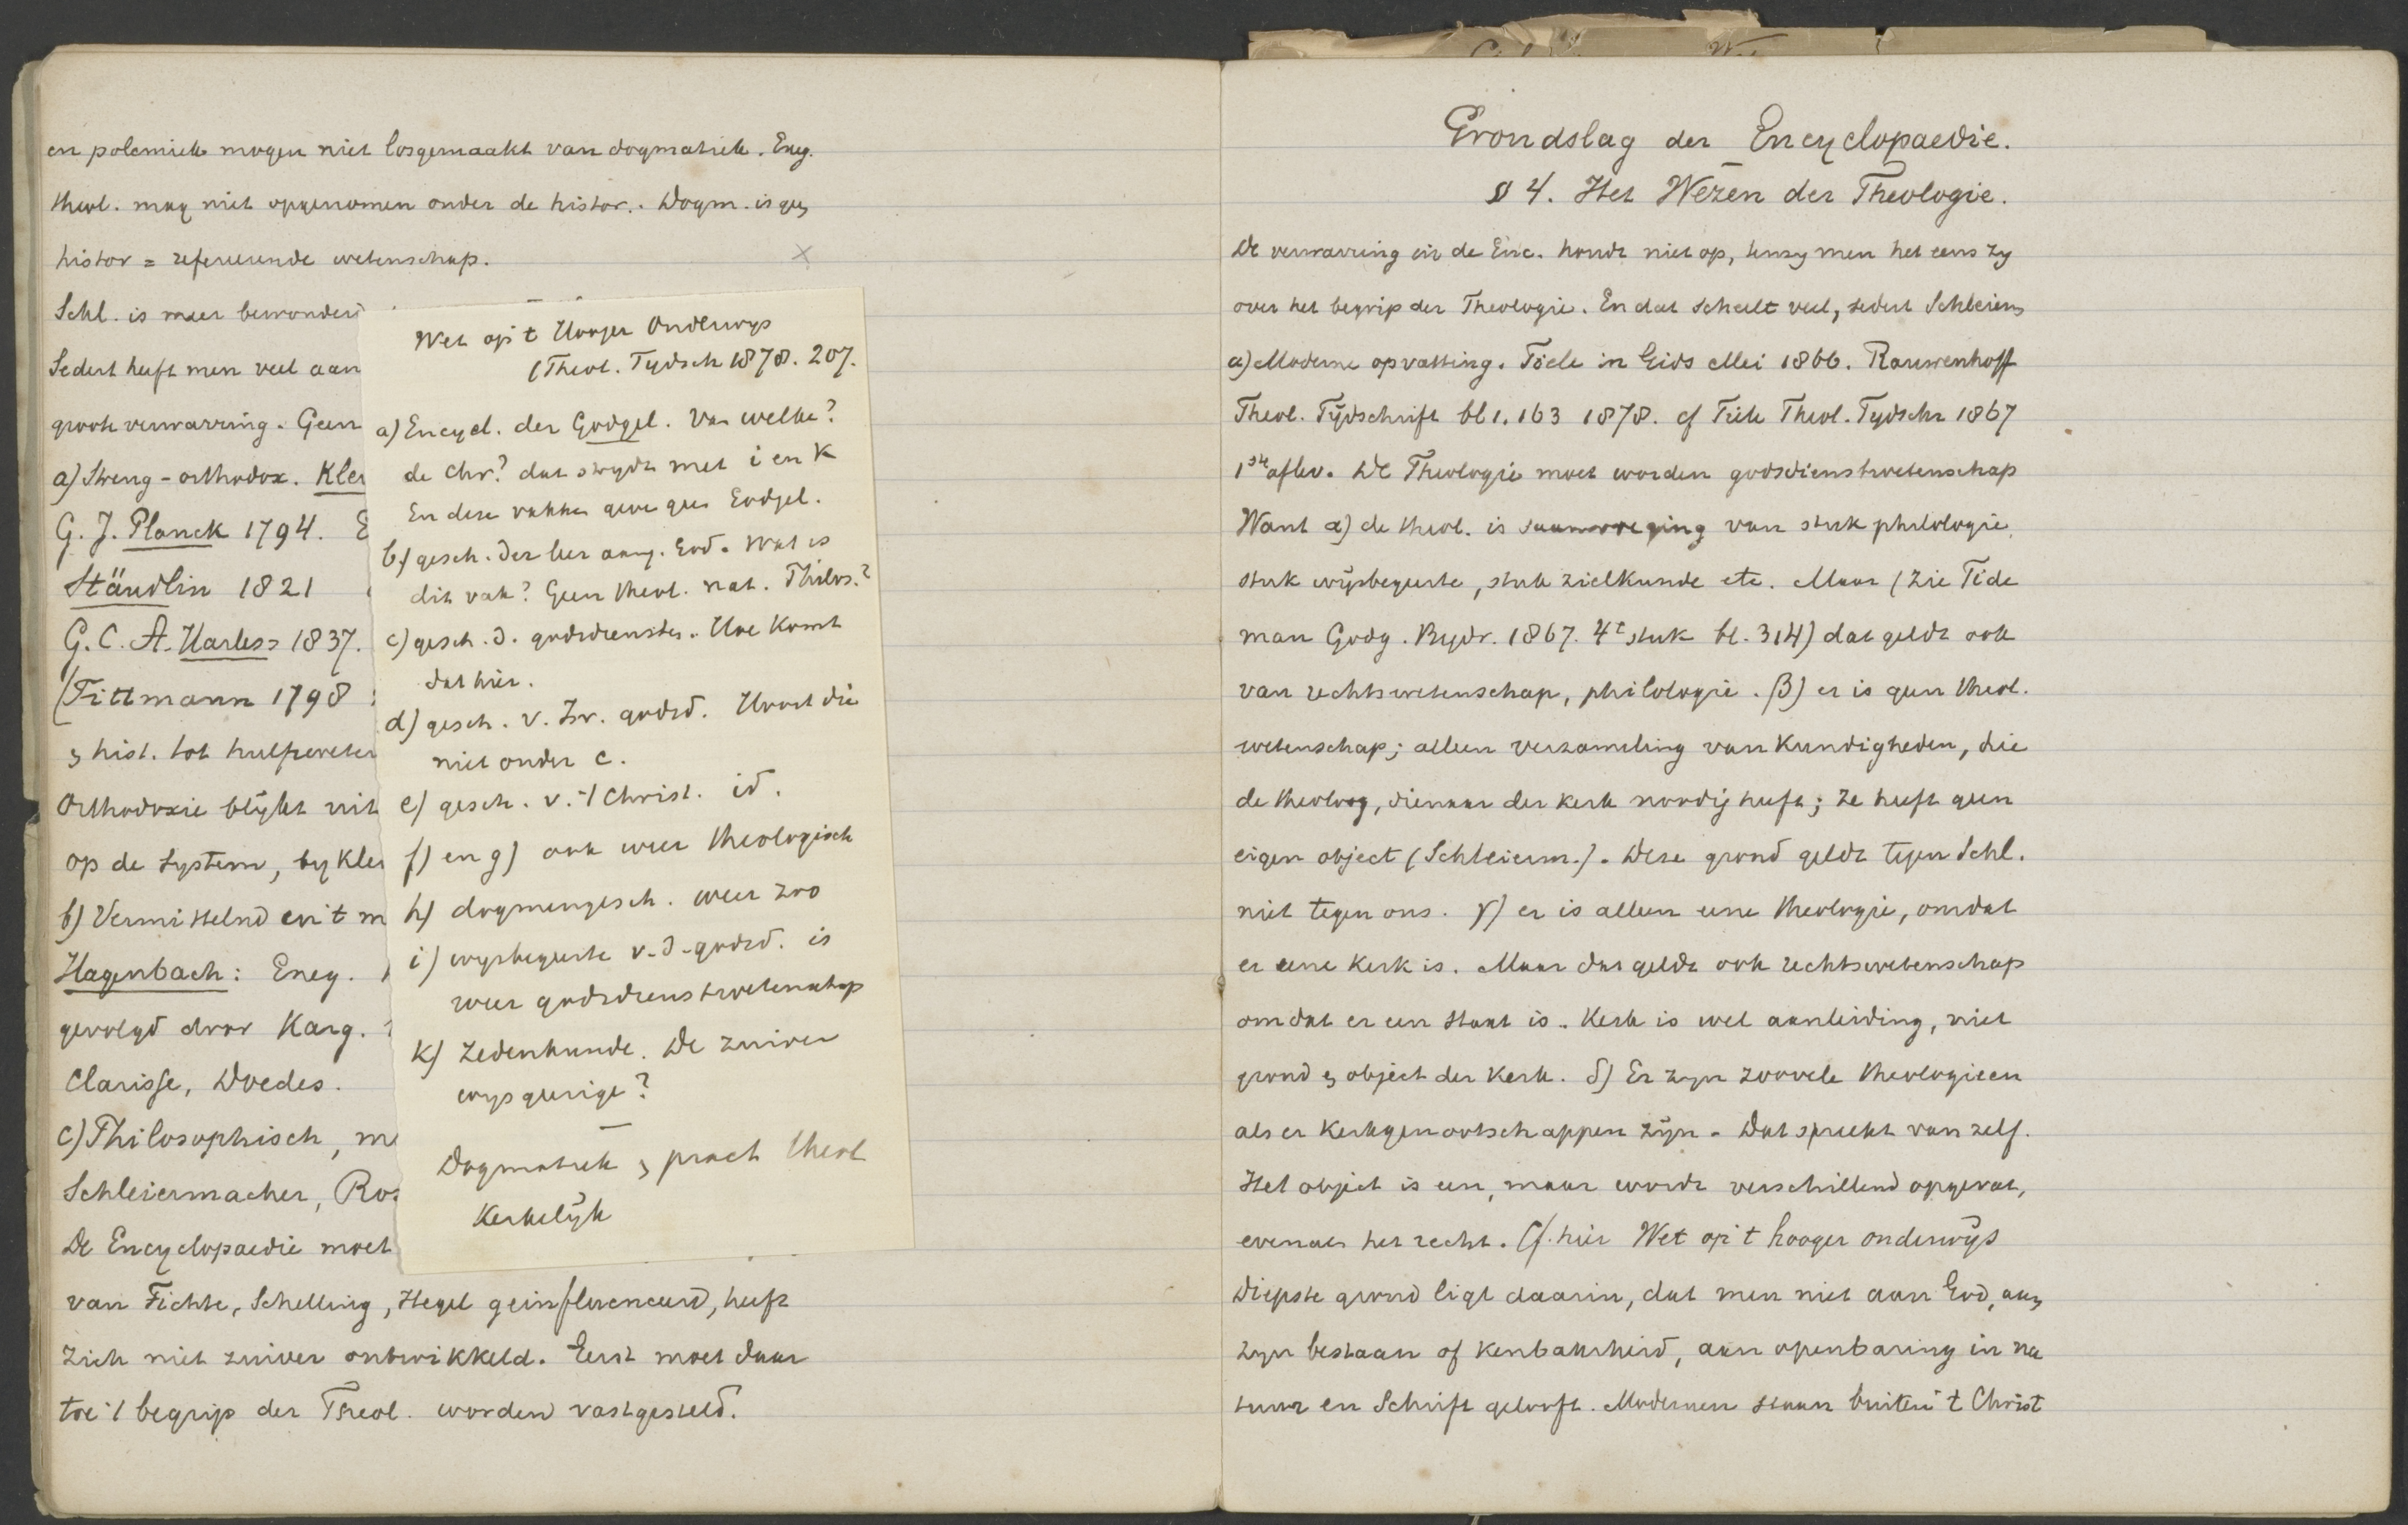 en polemiek mogen niet losgemaakt van dogmatiek. Exeg.
theol. mag niet opgenomen onder de histor.. Dogm. is geen
histor = refereerende wetenschap.
Schl. is meer bewonderd
Sedert heeft men veel aan
groote verwarring. Geen
a) Streng-orthodox. Kleu
G. J. Planck 1794. E
Stäudlin 1821
G. C. A. Harless 1837.
(Tittmann 1798
& hist. tot hulpweten
Orthodoxie blijkt uit
op de system, by Kleu
b) Vermittelnd en 't m
Hagenbach: Ency.
gevolgd door Karg.
Clarisse, Doedes.
c) Philosophisch, m
Schleiermacher, Ros
De Encyclopaedie moet
van Fichte, Schelling, Hegel geinfluenceerd, heeft
zich niet zuiver ontwikkeld. Eerst moet daar
toe 't begrip der Theol. worden vastgesteld.
Wet op 't Hooger Onderwys
(Theol. Tydsch 1878. 207.
a) Encycl. der Godgel. Van welke?
de Chr? dat strydt met i en k
En deze vakken geven geen Godgel.
b) gesch. der leer aang. God. Wat is
dit vak? Geen theol. nat. Philos.?
c) gesch. d. godsdiensten. Hoe komt
dat hier.
d) gesch. v. Isr. godsd. Hoort die
niet onder c.
e) gesch. v. 't Christ. id.
f) en g) ook weer theologisch
h) dogmengesch. weer zoo
i) wysbegeerte v. d. godsd. is
weer godsdienstwetenschap
k) Zedenkunde. De zuiver
wysgeerige?
Dogmatiek & pract theol
Kerkelijk
Grondslag der Encyclopaedie.
§ 4. Het Wezen der Theologie.
De verwarring in de Enc. houdt niet op, tenzy men het eens zy
over het begrip der Theologie. En dat scheelt veel, sedert Schleierm
a) Moderne opvatting. Tiele in Gids Mei 1866. Rauwenhoff
Theol. Tijdschrift bl. 163 1878. cf Tiele Theol. Tydschr 1867
1ste aflev. De Theologie moet worden godsdienstwetenschap
Want α) de theol. is saamvoeging van stuk philologie,
stuk wijsbegeerte, stuk zielkunde etc. Maar (zie Tide
man Godg. Bydr. 1867. 4e stuk bl. 314) dat geldt ook
van rechtswetenschap, philologie. β) er is geen theol.
wetenschap; alleen verzameling van kundigheden, die
de theoloog, dienaar der kerk noodig heeft; ze heeft geen
eigen object (Schleierm.). Deze grond geldt tegen Schl.
niet tegen ons. γ) er is alleen eene theologie, omdat
er eene kerk is. Maar dat geldt ook rechtswetenschap
omdat er een staat is. Kerk is wel aanleiding, niet
grond & object der kerk. δ) Er zyn zoovele theologieen
als er kerkgenootschappen zijn. Dat spreekt van zelf.
Het object is een, maar wordt verschillend opgevat,
evenals het recht. Cf. hier Wet op 't hooger onderwijs
Diepste grond ligt daarin, dat men niet aan God, aan
zyn bestaan of kenbaarheid, aan openbaring in na
tuur en Schrift gelooft. Modernen staan buiten 't Christ